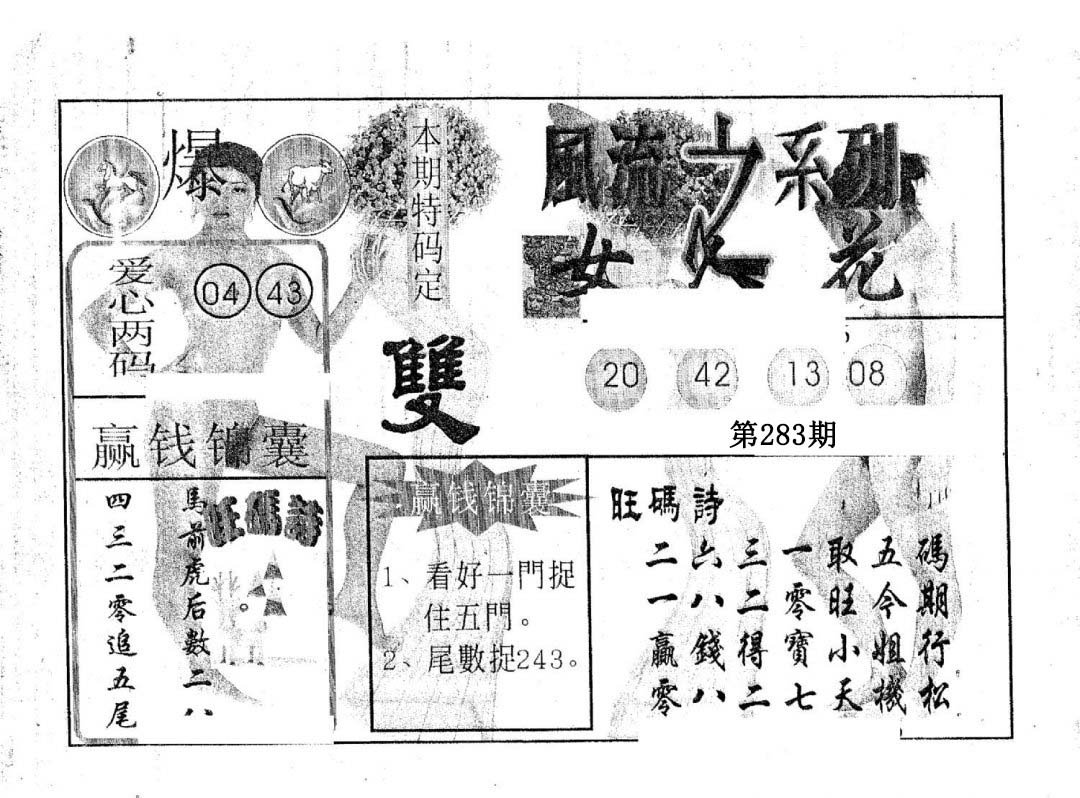 爆
爱心两码
04 43
赢钱锦囊
馬前虎后数二八。
四三二零追五尾
旺碼詩
本期特码定
雙
赢钱锦囊
1、看好一門捉
住五門。
2、尾數捉243。
風流
系列
女人花
20 42 13 08
第283期
旺碼詩
二六三一取五碼
一八二零旺今期
贏錢得寶小姐行
零八二七天機松